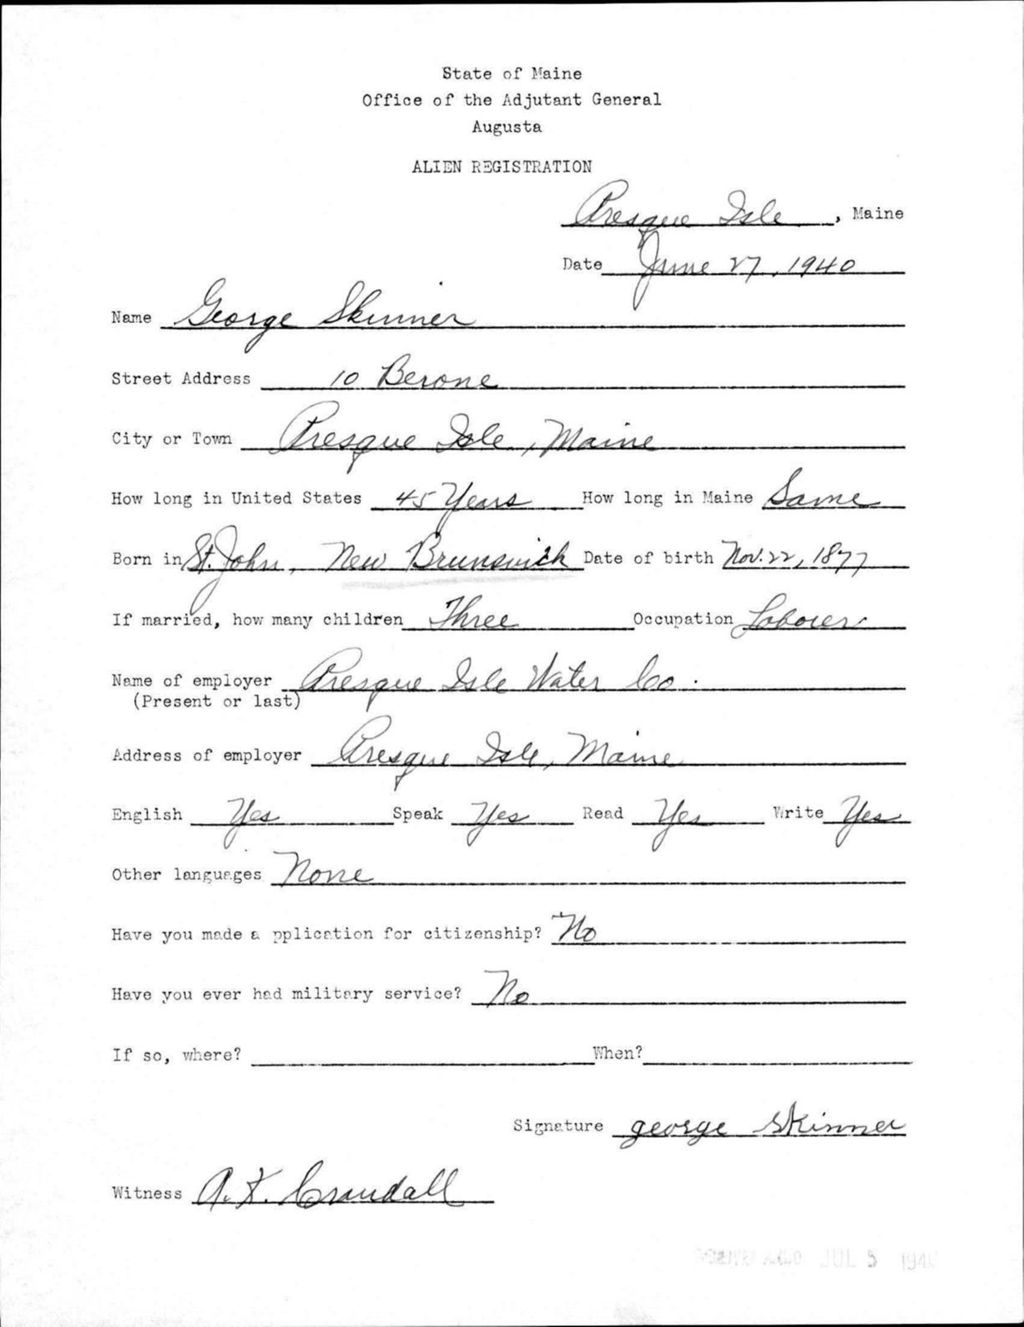 State of Maine
Office of the Adjutant General
Augusta
ALIEN REGISTRATION
Presque Isle, Maine
Date June 27, 1940
Name George Skinner
Street Address 10
City or Town Presque Isle, Maine
How long in United States 45 Years How long in Maine Same
Born in St. John, New Brunswick Date of birth Nov. 22, 1877
If married, how many children Three Occupation Laborer
Name of employer Presque Isle Water Co.
(Present or last)
Address of employer Presque Isle, Maine
English Yes Speak Yes Read Yes Write Yes
Other languages None
Have you made a pplication for citizenship? No
Have you ever had military service? No
If so, where? When?
Signature george skinner
Witness Crandall
JUL 5 1940